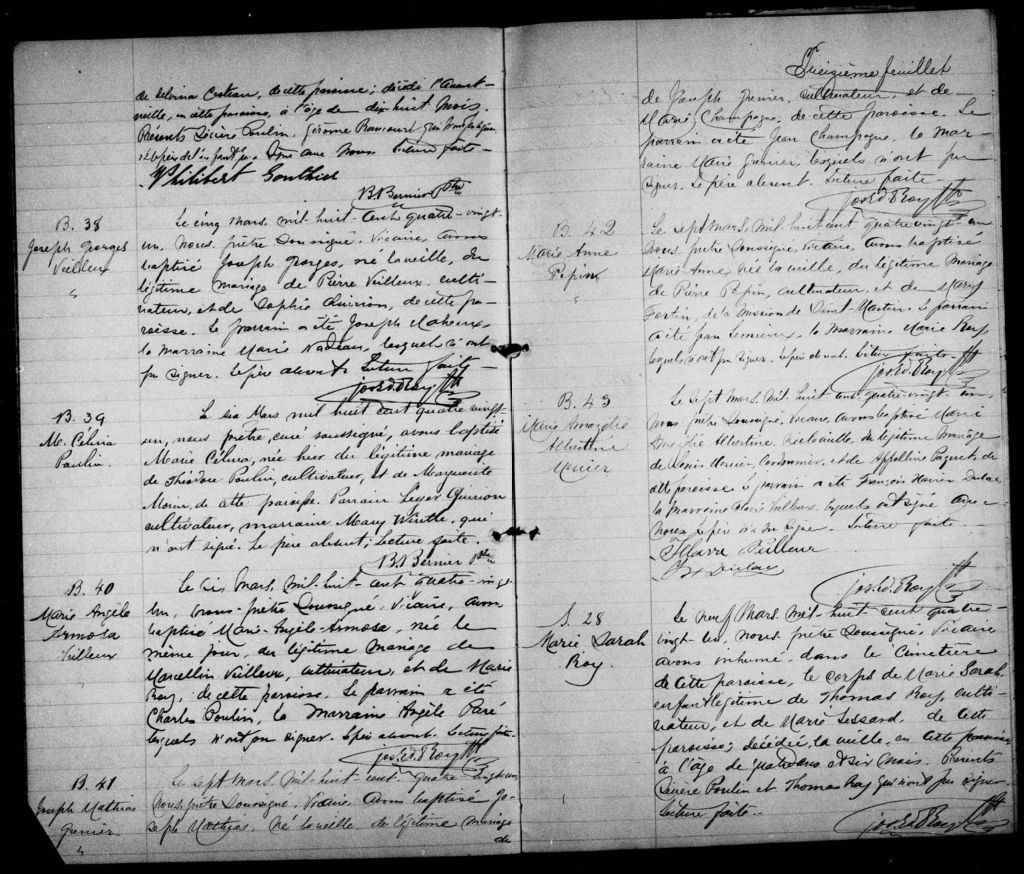 de Delvina Croteau, de cette paroisse; décédé l'avant-
veille, en cette paroisse, à l'âge de dix huit mois.
Présents Sévère Poulin. Gérome
le père de l'enfant Lecture faite-
Philibert Gonthier
B. Bernier Ptre
B. 38
Joseph Georges
Veilleux
Le cinq Mars, mil-huit-cent quatre-vingt-
un, Nous, prêtre Soussigné, Vicaire, avons
baptisé Joseph Georges, né la veille, du
légitime mariage de Pierre Veilleux, culti-
vateur, et de Sophie Quirion, de cette pa-
roisse. Le parrain a été Joseph Maheux,
la marraine Marie Nadeau, lesquels n'ont
pu signer. Le père absent. Lecture faite.
Jos. Ed. Roy Ptre
B. 39
M. Célina
Poulin.
Le six Mars mil huit cent quatre vingt-
un, nous prêtre, curé soussigné, avons baptisé
Marie Célina, née hier du légitime mariage
de Théodore Poulin, cultivateur, et de Marguerite
Morin, de cette paroisse. Parrain Léger Quirion
cultivateur, marraine Mary qui
n'ont signé. Le père absent; Lecture faite.
B. Bernier Ptre
B. 40
Marie Angèle
Armosa
Veilleux
Le six Mars, mil-huit-cent quatre-vingt
un, Nous prêtre Soussigné, Vicaire, avons
baptisé Marie-Angèle-Armosa, née le
même jour, du légitime mariage de
Marcellin Veilleux, cultivateur, et de Marie
Roy, de cette paroisse. Le parrain a été
Charles Poulin, la Marraine Angèle Paré
lesquels n'ont pu signer. Le père absent. Lecture faite.
Jos. Ed. Roy Ptre
B. 41
Joseph Mathias
Grenier
Le sept Mars, mil-huit-cent-quatre-vingt un,
Nous, prêtre Soussigné, Vicaire, avons baptisé Jo-
seph Mathias, né la veille, du légitime mariage
de
Treizième feuillet
de Joseph Grenier, cultivateur, et de
Marie Champagne, de cette paroisse. Le
parrain a été Jean Champagne, la mar-
raine Marie Grenier, lesquels n'ont pu
signer. Le père absent. Lecture faite-
Jos. Ed. Roy Ptre
B. 42
Marie Anne
Pepin
Le sept Mars, Mil huit cent quatre vingt-un
Nous prêtre Soussigné, Vicaire, avons baptisé
Marie-Anne, née la veille, du légitime Mariage
de Pierre Pepin, cultivateur, et de Mary
Fortin, de la Mission de Saint-Martin. Le parrain
a été Jean Lemieux, la Marraine Marie Roy,
lesquels n'ont pu signer. Le père absent. Lecture faite.
Jos. Ed. Roy Ptre
B. 43
Marie Amazélie
Albertine
Mercier
Le sept Mars, Mil huit cent quatre-vingt un,
Nous prêtre Soussigné, Vicaire, avons baptisé Marie
Amazélie Albertine, née la veille, du légitime Mariage
de Louis Mercier, Cordonnier, et de Appolline Paquet, de
cette paroisse. Le parrain a été François Xavier Dulac
la marraine Flavie Veilleux lesquels ont signé avec
Nous. Le père n'a su signer. Lecture faite
Flavie Veilleux
Dulac
Jos. Ed. Roy Ptre
S. 28
Marie Sarah
Roy.
Le neuf Mars, Mil-huit cent quatre-
vingt un, Nous prêtre Soussigné, Vicaire
avons inhumé dans le Cimetière
de Cette paroisse, le corps de Marie Sarah,
enfant légitime de Thomas Roy, culti-
vateur, et de Marie Lessard, de cette
paroisse, décédée, la veille, en cette paroisse
à l'âge de quatre ans et six mois. Présents
Sévère Poulin et Thomas Roy qui n'ont pu signer
Lecture faite-
Jos. Ed. Roy Ptre